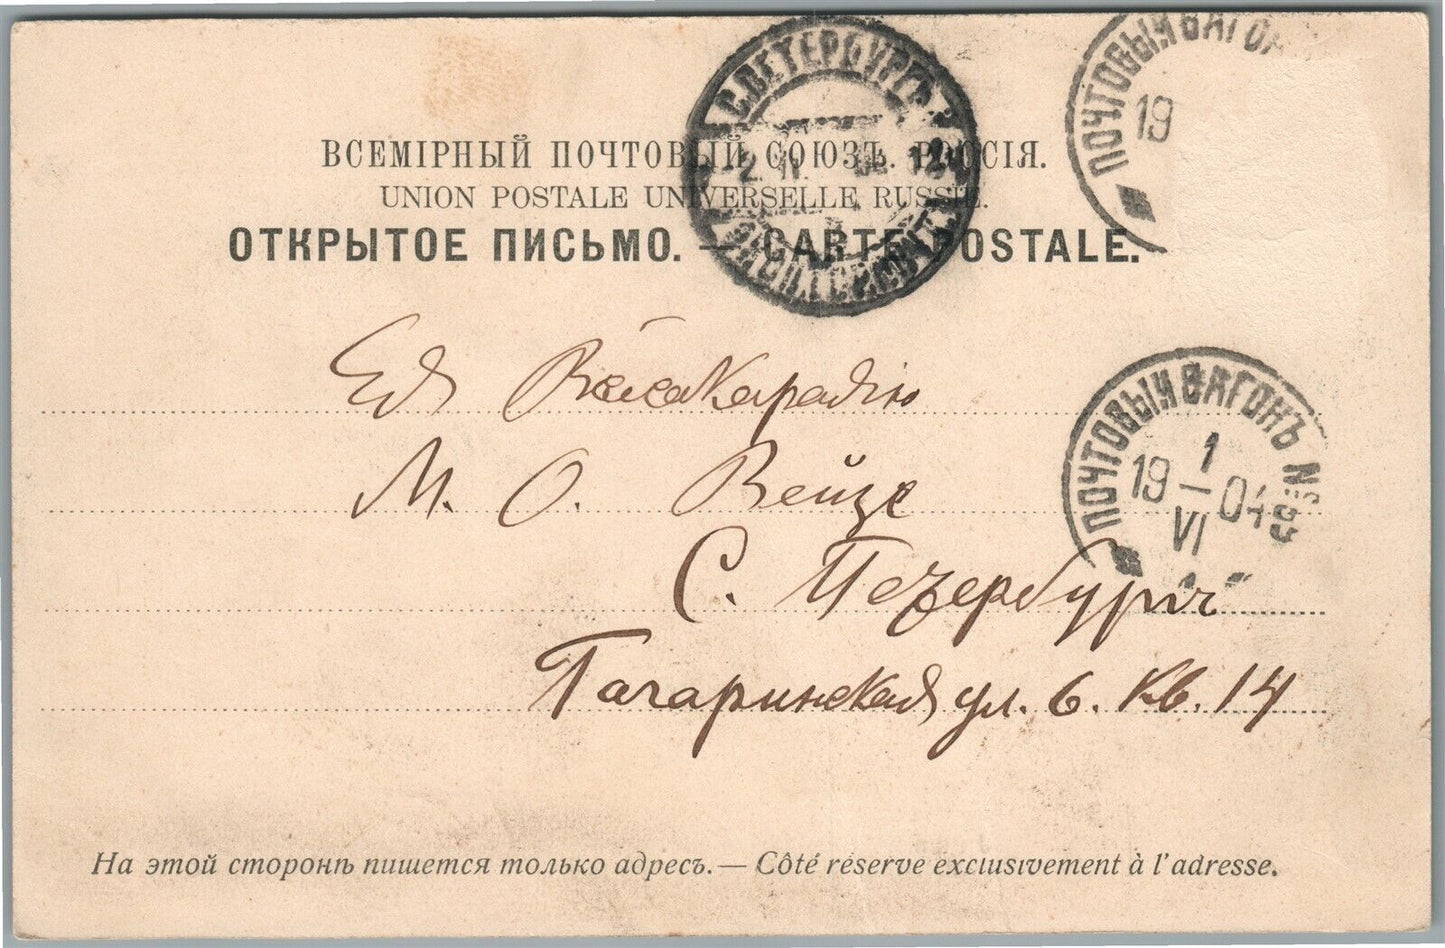 С.ПЕТЕРБУРГЪ
ПОЧТОВЫЙ ВАГОН
19
ВСЕМІРНЫЙ ПОЧТОВЫЙ СОЮЗЪ. РОССІЯ.
UNION POSTALE UNIVERSELLE RUSSIE.
ОТКРЫТОЕ ПИСЬМО. — CARTE POSTALE.
ПОЧТОВЫЙ ВАГОНЪ №
1
19 — 04
VI
Ея
М. О. Вейзе
С. Петербургъ
Гагаринская ул. 6. кв. 14
На этой сторонѣ пишется только адресъ. — Côté réservé exclusivement à l'adresse.